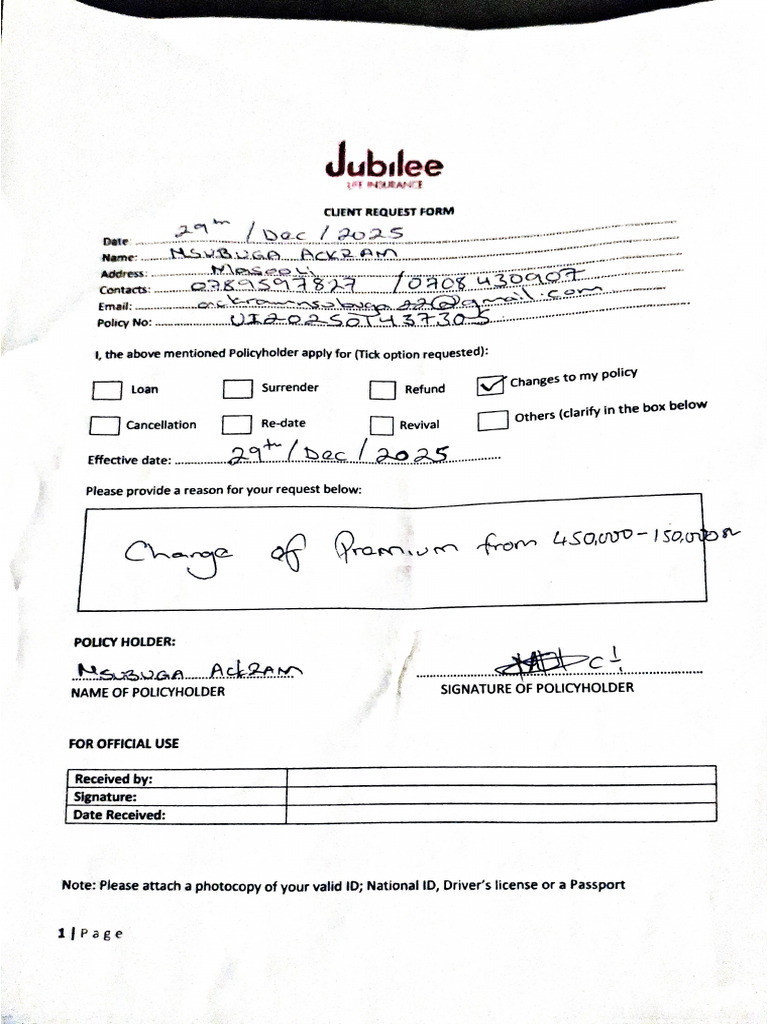 Jubilee
LIFE INSURANCE
CLIENT REQUEST FORM
Date: 29th / Dec / 2025
Name: NSUBUGA ACKRAM
Address: Maseoli
Contacts: 0789597827 / 0708430907
Email: ackramnsubuga22@gmail.com
Policy No: UI20250T437305
I, the above mentioned Policyholder apply for (Tick option requested):
Loan Surrender Refund ✓ Changes to my policy
Cancellation Re-date Revival Others (clarify in the box below
Effective date: 29th / Dec / 2025
Please provide a reason for your request below:
Change of Premium from 450,000 - 150,000
POLICY HOLDER:
NSUBUGA ACKRAM
NAME OF POLICYHOLDER SIGNATURE OF POLICYHOLDER
FOR OFFICIAL USE
Received by:
Signature:
Date Received:
Note: Please attach a photocopy of your valid ID; National ID, Driver's license or a Passport
1 | Page